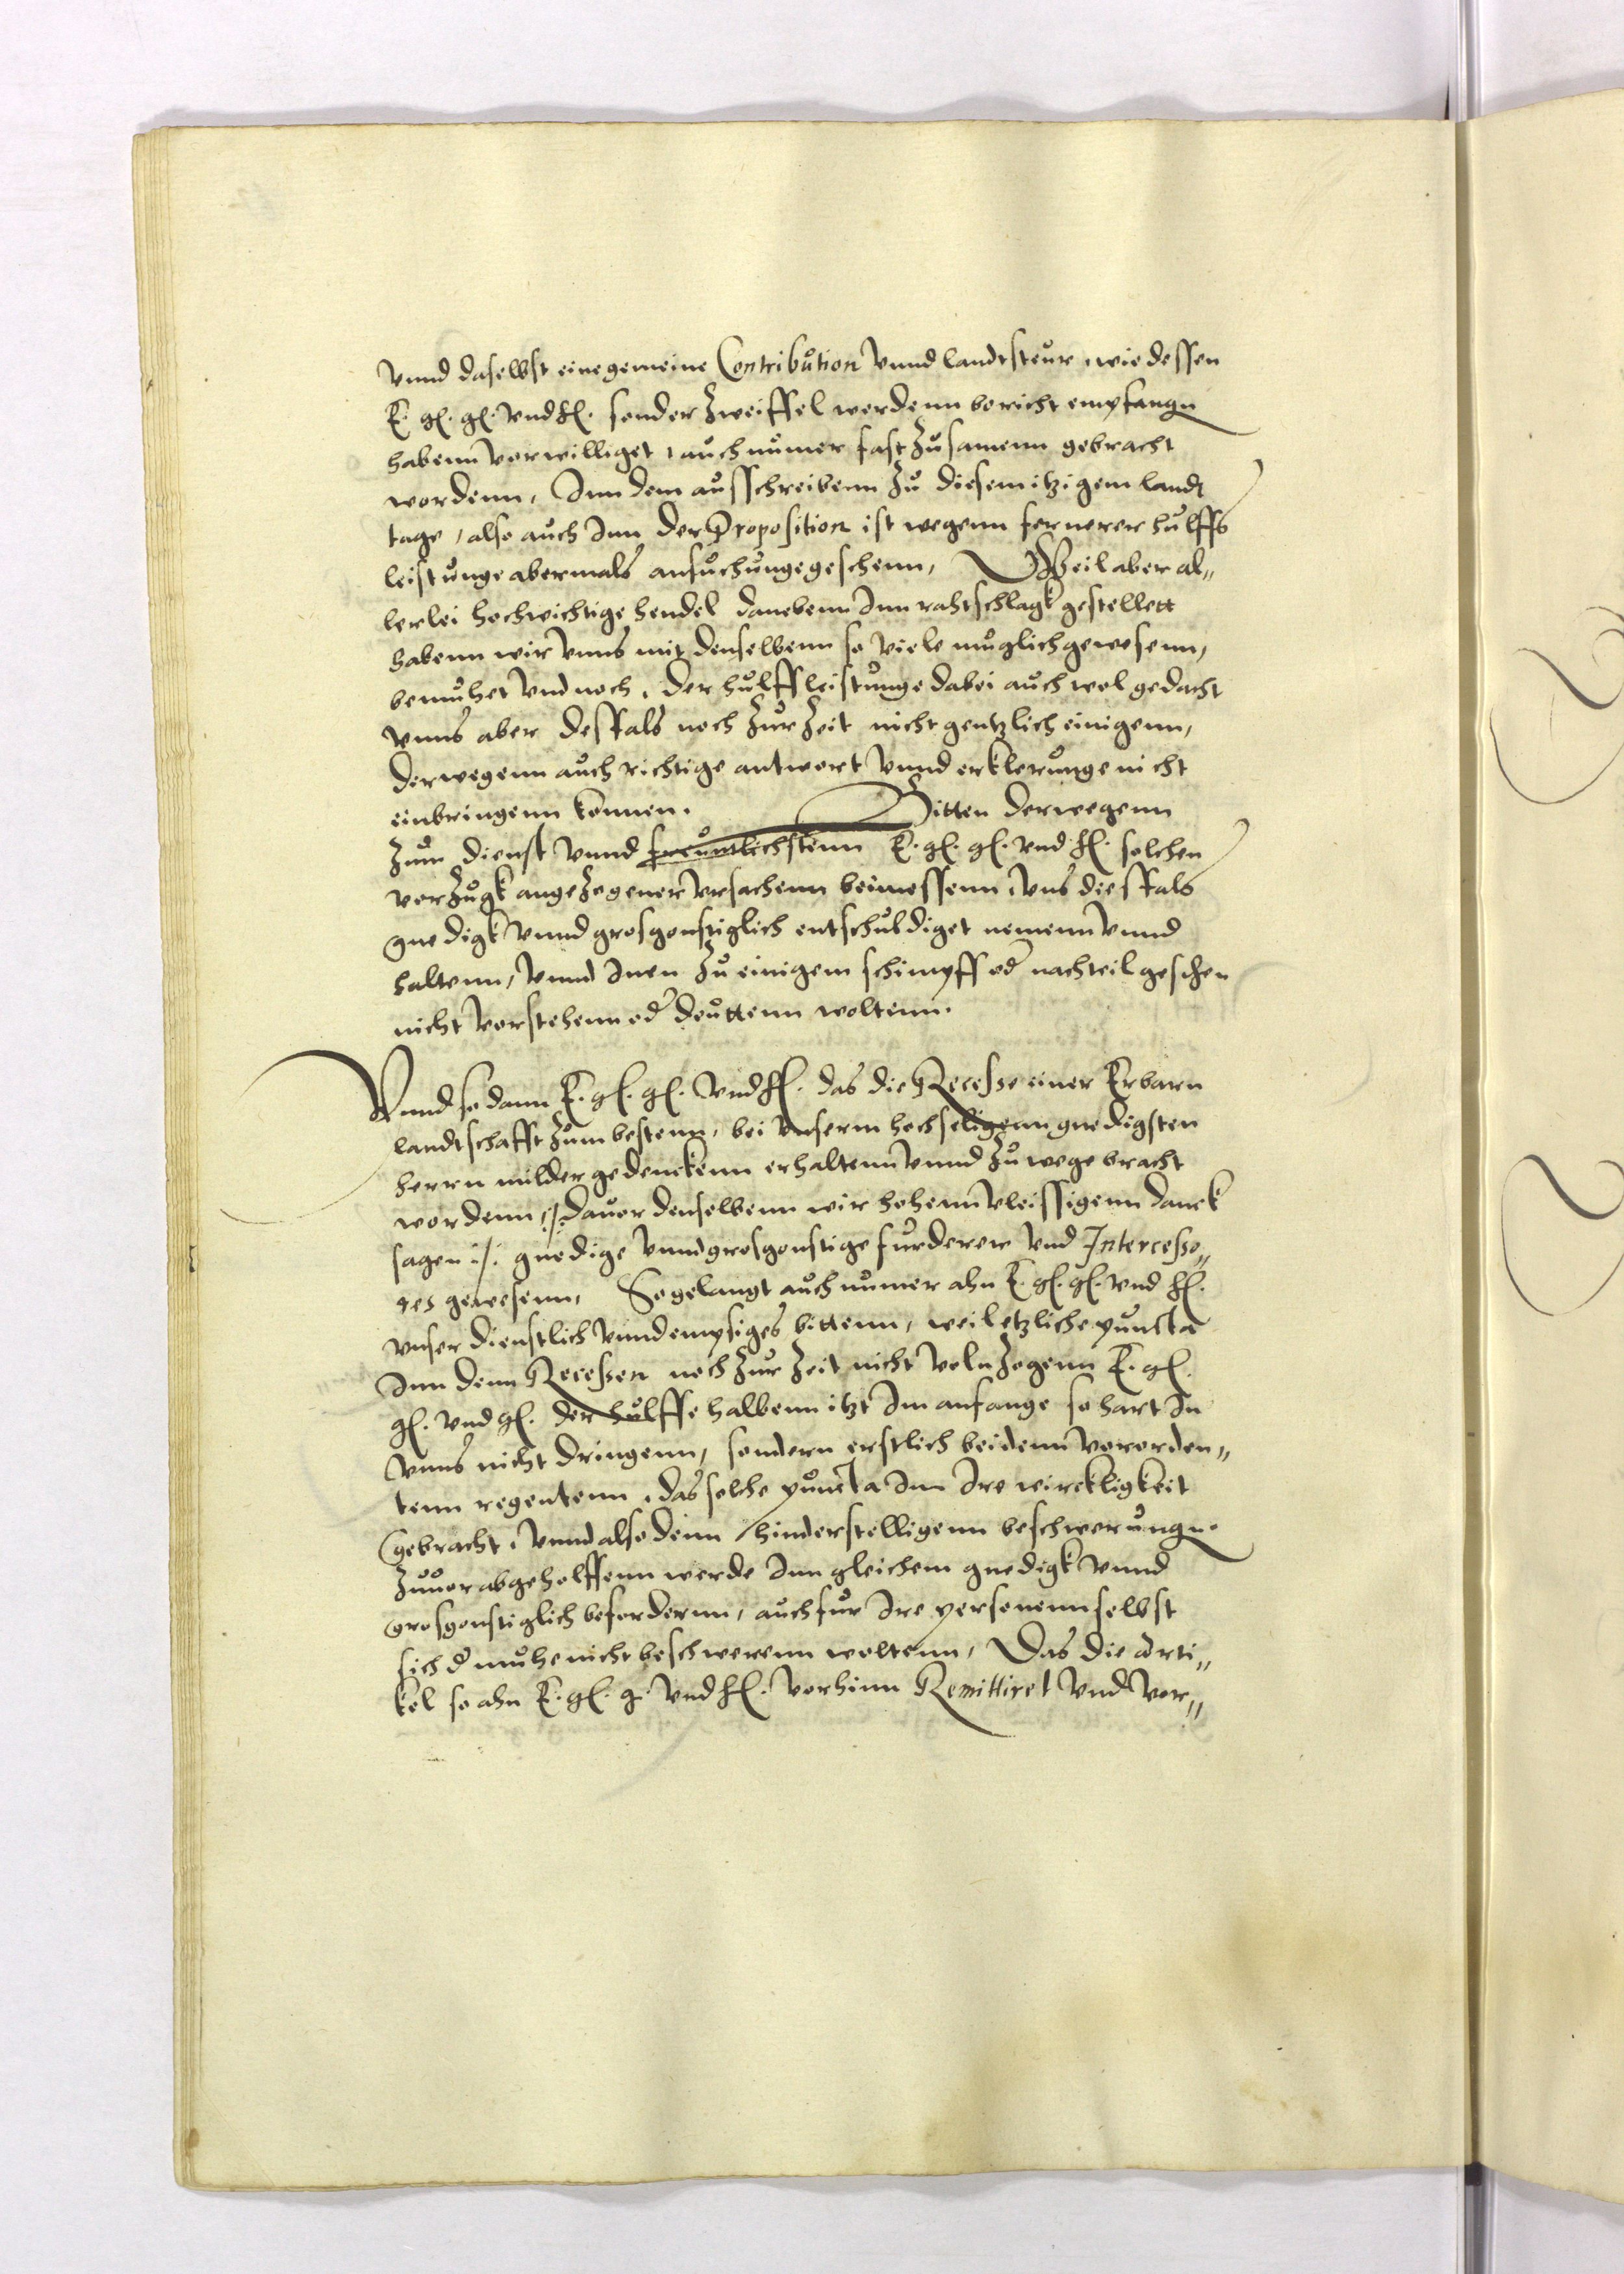 vnnd daselbst eine gemeine Contribution vnnd landtsteur, wie dessen
E. gl. gl. vnd hl. sonder Zweiffel werdenn bericht empfangn
habenn verwilliget, auch numer fast Zusamenn gebracht
wordenn, Inn dem ausschreibenn Zu diesem itzigem landt
tage, also auch Inn der Proposition ist wegenn fernerer hulffs
leistunge abermals ansuchunge geschenn, Weil aber al„
lerlei hochwichtige hendel danebenn Inn rahtschlagk gestellett
habenn wir vnns mit denselbenn so viele muglich gewesenn,
bemuhet vnd noch, der hulffleistunge dabei auch wol gedacht
vnns aber desfals noch Zur Zeit nicht gentzlich einigenn,
derwegenn auch richtige antwort vnnd erklerunge nicht
einbringenn konnen. Bitten derwegenn
Zum dienst vnnd freuntlichstenn E. gl. gl. vnd hl. solchen
verZugk angeZogener vrsachenn beimessenn, vns diesfals
gnedigk vnnd grosgonstiglich entschuldiget nemenn vnnd
haltenn, vnnd Inen Zu einigem schimpff od nachteil geschen
nicht verstehenn od deuttenn woltenn.
Vnnd so dann E. gl. gl. vnd hl. das die Recesse einer Erbarn
landtschafft Zum bestenn, bei vnserm hochseligenn gnedigsten
herrn milder gedenckenn erhaltenn vnnd Zu wege bracht
wordenn, :/: dauor denselbenn wir hohenn vleissigenn danck
sagen :/: gnedige vnnd grosgonstige furderer vnd Intercesso„
res gewesenn, So gelangt auch numer ahn E. gl. gl. vnd hl.
vnser dienstlich vnnd empsiges bittenn, weil etzliche puncta
Inn denn Recessen noch Zur Zeit nicht volnZogenn E. gl.
gl. vnd gl. der hulffe halbenn itzt Im anfange so hart In
vnns nicht dringenn, sondern erstlich bei denn verorden„
tenn regentenn, das solche puncta Inn Ire wirckligkeit
gebracht, vnnd also denn hinderstelligenn beschwerungn
Zuuor abgeholffenn werde Inn gleichem gnedigk vnnd
grosgonstiglich befordernn, auch fur Ire personenn selbst
sich d muhe nicht beschwerenn woltenn, Das die Arti„
kel so ahn E. gl. g. vnd hl. vorhinn Remittiret vnd ver„